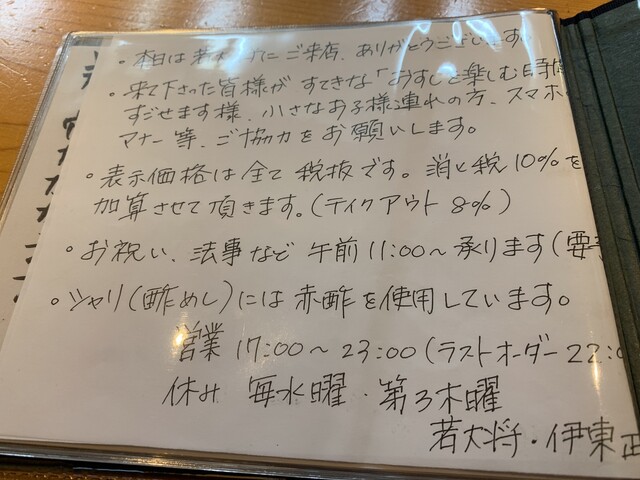 ・本日は若大将にご来店、ありがとうございます。
・来て下さった皆様が すてきな「おすしを楽しむ時
すごせます様、小さなお子様連れの方、スマホ
マナー等、ご協力をお願いします。
・表示価格は全て税抜です。消費税10%を
加算させて頂きます。(テイクアウト 8%)
・お祝い、法事など 午前11:00〜承ります(要
・シャリ(酢めし)には赤酢を使用しています。
営業 17:00〜23:00(ラストオーダー22:0
休み 毎水曜・第3木曜
若大将・伊東正